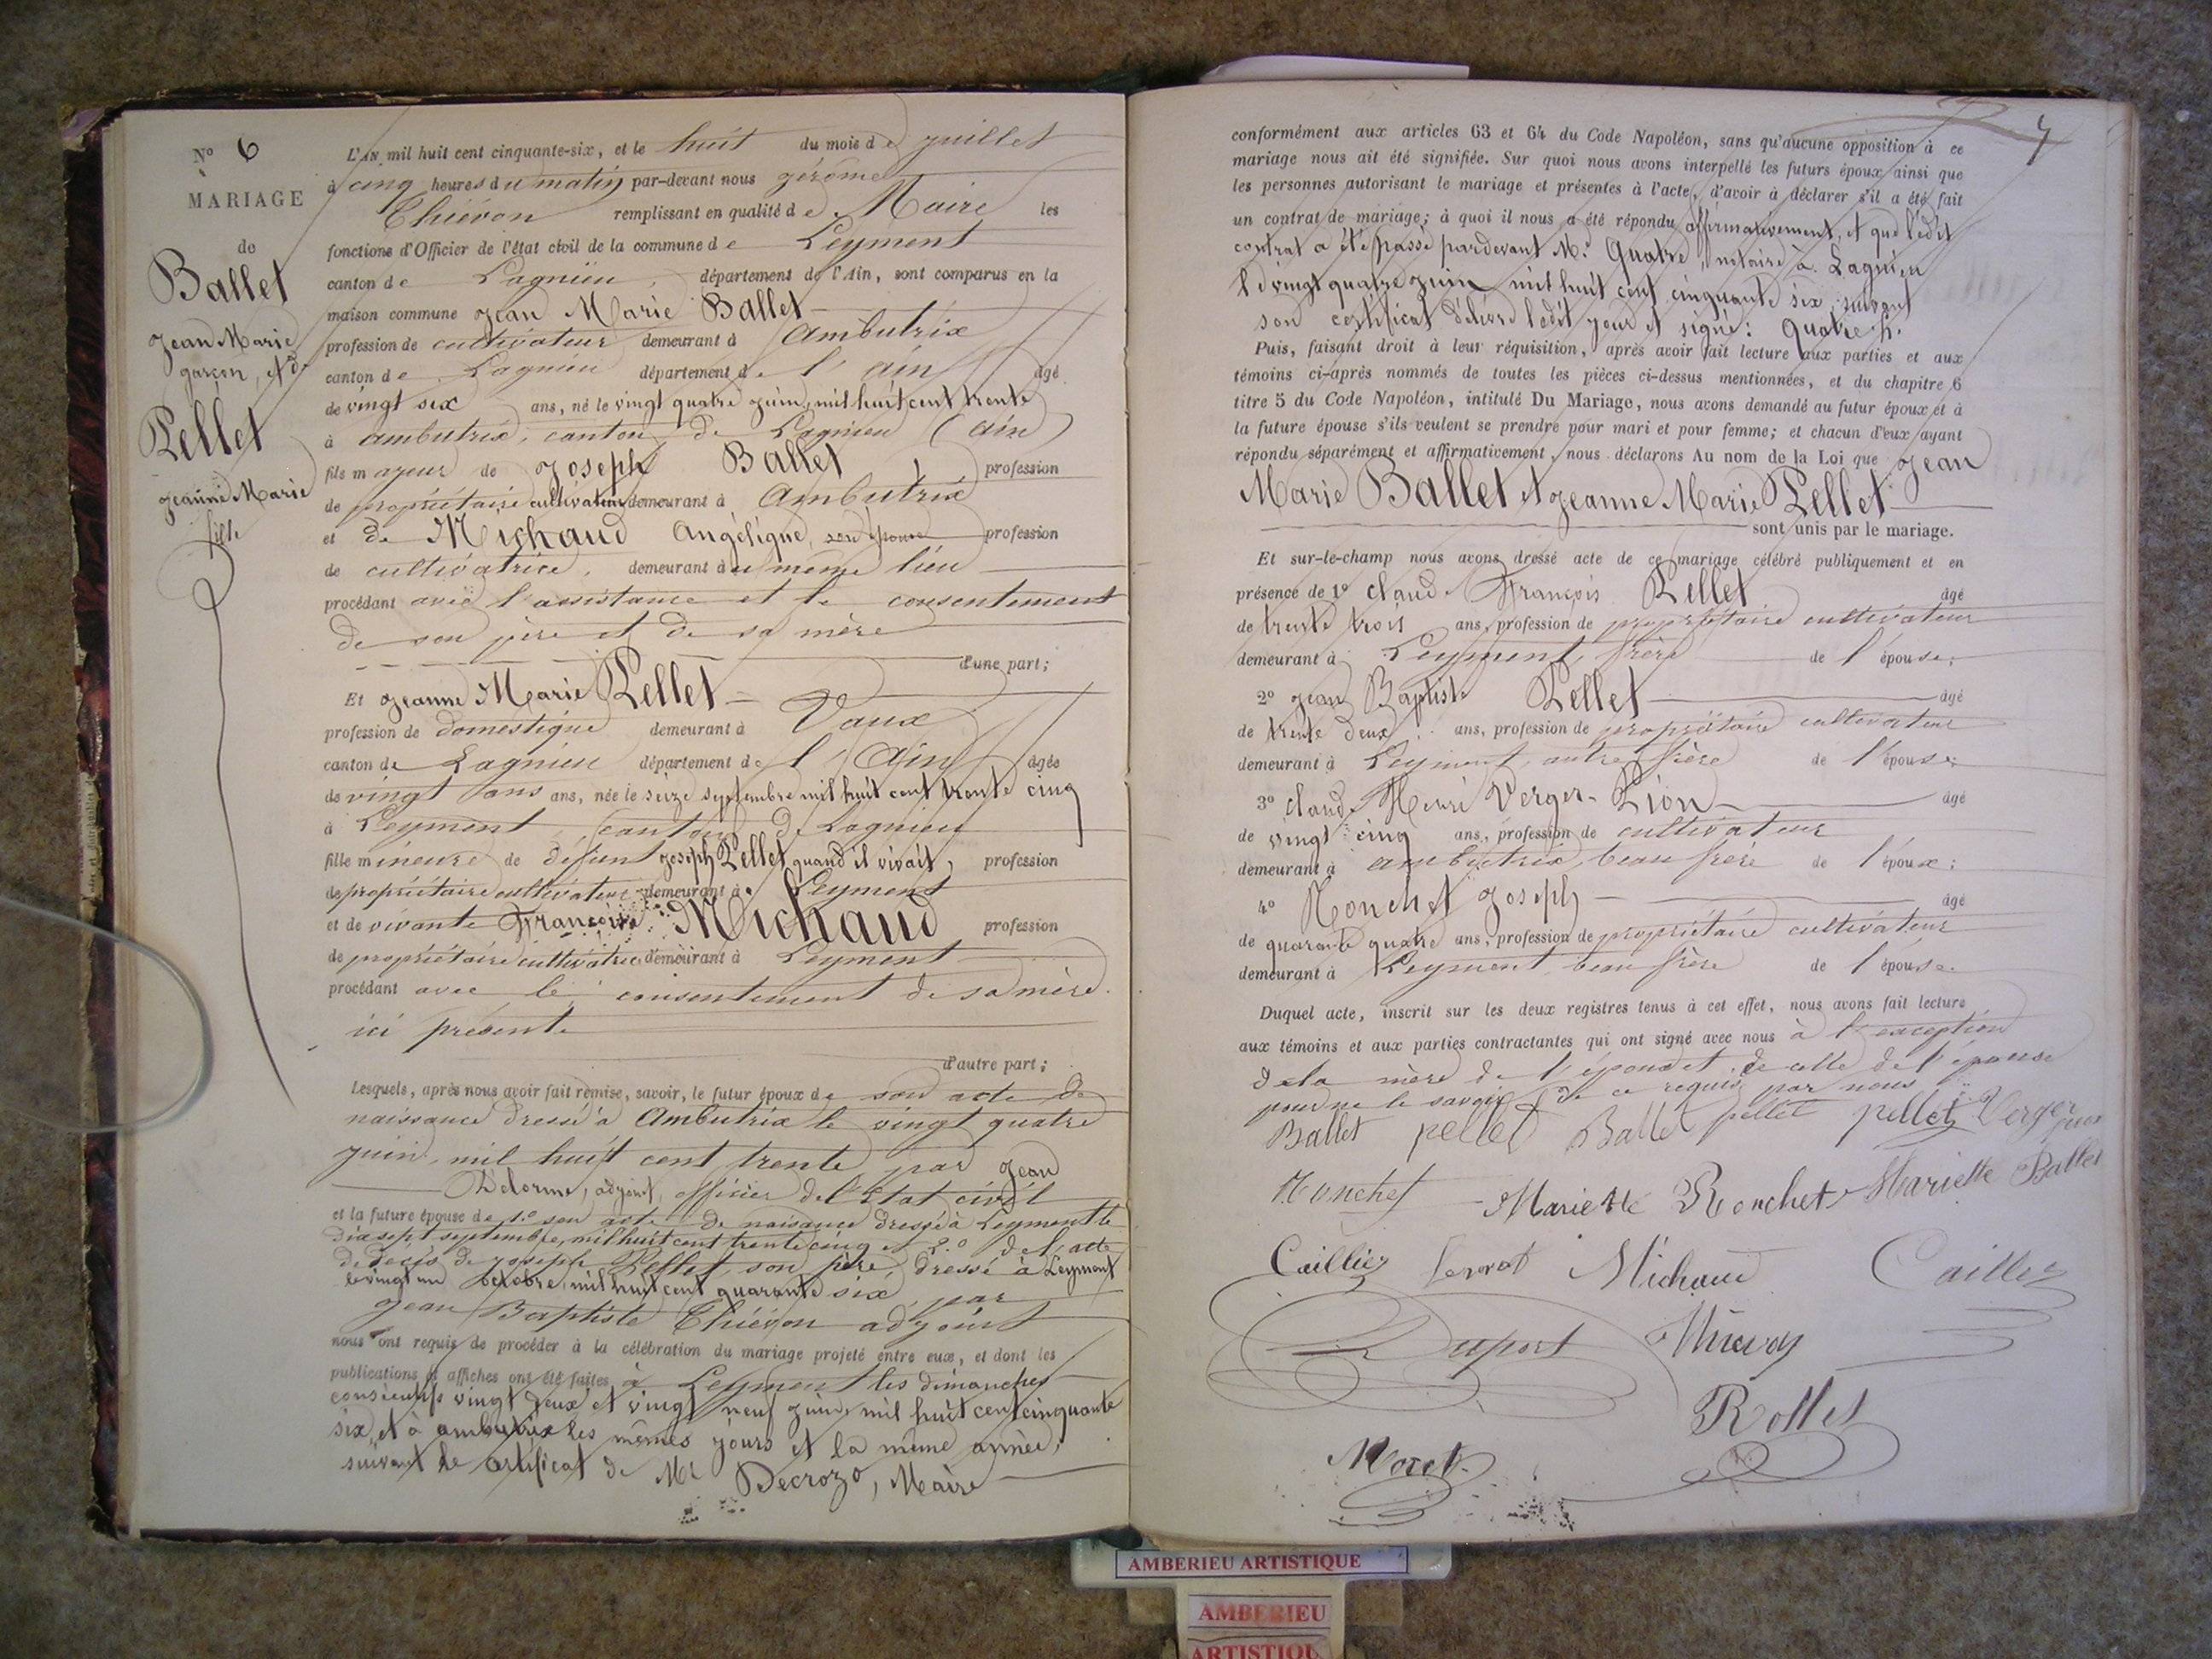 N° 6
MARIAGE
de
Ballet
Jean Marie
garçon, et de
Pellet
Jeanne Marie
fille
L'AN mil huit cent cinquante-six, et le huit du mois de juillet
à cinq heures du matin par-devant nous Jérôme
Thiévon remplissant en qualité de Maire les
fonctions d'Officier de l'état civil de la commune de Leyment
canton de Lagnieu, département de l'Ain, sont comparus en la
maison commune Jean Marie Ballet
profession de cultivateur demeurant à Ambutrix
canton de Lagnieu département de l'ain âgé
de vingt six ans, né le vingt quatre juin, mil huit cent trente
à ambutrix, canton de Lagnieu (ain)
fils majeur de Joseph Ballet, profession
de propriétaire cultivateur demeurant à Ambutrix
et de Michaud Angélique, son épouse profession
de cultivatrice, demeurant au même lieu
procédant avec l'assistance et le consentement
de son père et de sa mère
d'une part;
Et Jeanne Marie Pellet
profession de domestique demeurant à Vaux
canton de Lagnieu département de l'Ain âgée
de vingt ans ans, née le seize septembre mil huit cent trente cinq
à Leyment, canton de Lagnieu
fille mineure de défunt Joseph Pellet quand il vivait, profession
de propriétaire cultivateur demeurant à Leyment
et de vivante Françoise Michaud profession
de propriétaire cultivatrice demeurant à Leyment
procédant avec le consentement de sa mère
ici présente
d'autre part;
Lesquels, après nous avoir fait remise, savoir, le futur époux de son acte de
naissance dressé à Ambutrix le vingt quatre
juin, mil huit cent trente par Jean
Delorme, adjoint, officier de l'Etat civil
et la future épouse de 1.° son acte de naissance dressé à Leyment le
dix sept septembre, mil huit cent trente cinq et 2.° de l'acte
de décès de Joseph Pellet, son père, dressé à Leyment
le vingt un octobre, mil huit cent quarante six, par
Jean Baptiste Thiévon adjoint
nous ont requis de procéder à la célébration du mariage projeté entre eux, et dont les
publications et affiches ont été faites à Leyment les dimanches
consécutifs vingt deux et vingt neuf juin, mil huit cent cinquante
six, et à ambutrix les mêmes jours et la même année,
suivant le certificat de Mr Decrozo, Maire
7
conformément aux articles 63 et 64 du Code Napoléon, sans qu'aucune opposition à ce
mariage nous ait été signifiée. Sur quoi nous avons interpellé les futurs époux ainsi que
les personnes autorisant le mariage et présentes à l'acte, d'avoir à déclarer s'il a été fait
un contrat de mariage; à quoi il nous a été répondu affirmativement, et que ledit
contrat a été passé pardevant Me. Quatre, notaire à Lagnieu
le vingt quatre juin mil huit cent cinquante six, suivant
son certificat délivré ledit jour et signé: Quatre
Puis, faisant droit à leur réquisition, après avoir fait lecture aux parties et aux
témoins ci-après nommés de toutes les pièces ci-dessus mentionnées, et du chapitre 6
titre 5 du Code Napoléon, intitulé Du Mariage, nous avons demandé au futur époux et à
la future épouse s'ils veulent se prendre pour mari et pour femme; et chacun d'eux ayant
répondu séparément et affirmativement, nous déclarons Au nom de la Loi que Jean
Marie Ballet et Jeanne Marie Pellet
sont unis par le mariage.
Et sur-le-champ nous avons dressé acte de ce mariage célébré publiquement et en
présence de 1° Claude François Pellet âgé
de trente trois ans, profession de propriétaire cultivateur
demeurant à Leyment, frère de l'épouse;
2° Jean Baptiste Pellet âgé
de trente deux ans, profession de propriétaire cultivateur
demeurant à Leyment, autre frère de l'épouse;
3° Claude Henri Verger-Lion âgé
de vingt cinq ans, profession de cultivateur
demeurant à ambutrix, beau frère de l'époux;
4° Ronchet Joseph âgé
de quarante quatre ans, profession de propriétaire cultivateur
demeurant à Leyment, beau frère de l'épouse.
Duquel acte, inscrit sur les deux registres tenus à cet effet, nous avons fait lecture
aux témoins et aux parties contractantes qui ont signé avec nous à l'exception
de la mère de l'époux et de celle de l'épouse
pour ne le savoir de ce requis par nous
Ballet pellet Ballet pellet pellet Verger
Ronchet Mariette Ronchet Mariette Ballet
Caillier Michaud Caillier
Duport Thiévon
Rollet
Moret
AMBERIEU ARTISTIQUE
AMBERIEU
ARTISTIQU